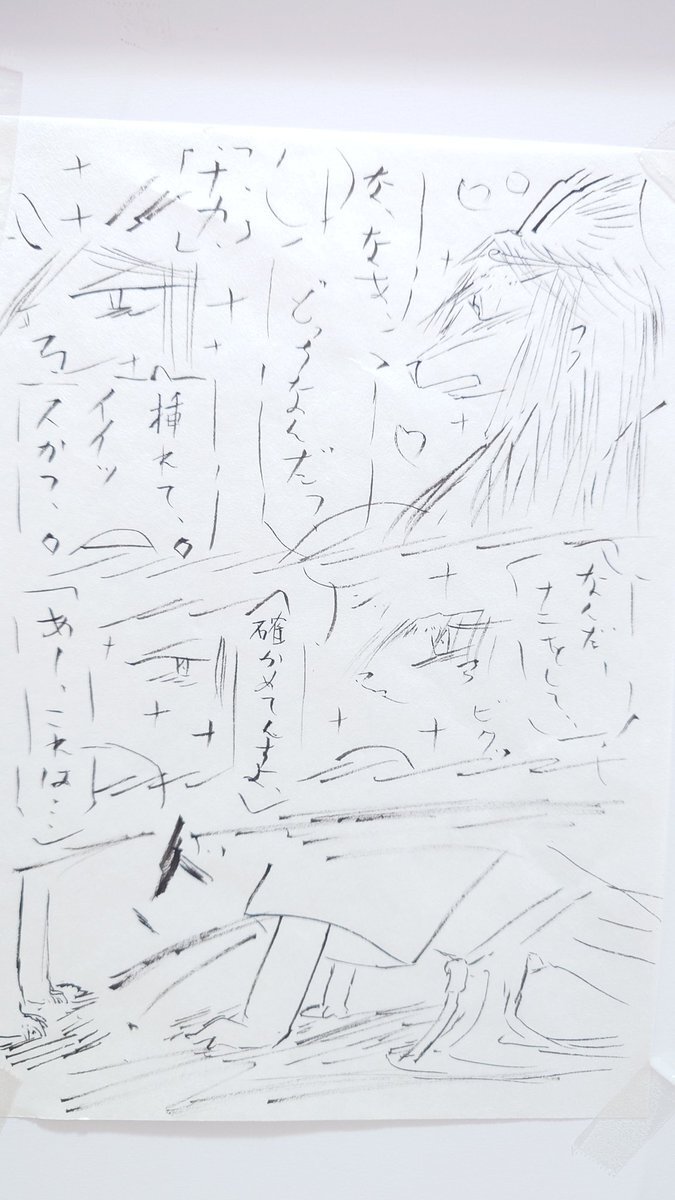 な、なき、
どっちなんだっ
「ナカ、」
挿れて、
イイッ
スかっ、
「なんだ、
ナニをして、」
ビクッ
「確かめてんすよ、」
「あー、これは…」